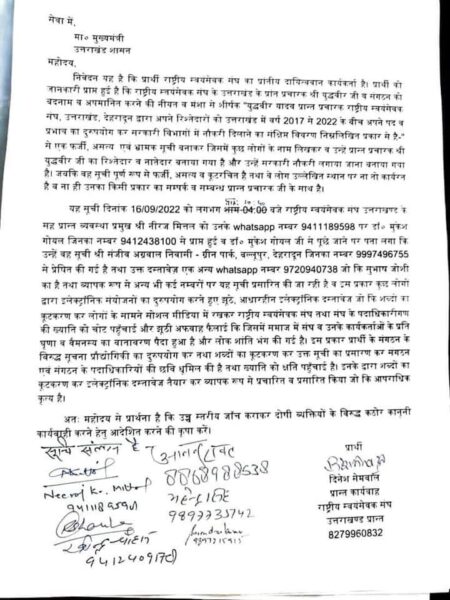 सेवा में,
मा० मुख्यमंत्री
उत्तराखंड शासन
महोदय,
निवेदन यह है कि प्रार्थी राष्ट्रीय स्वयंसेवक संघ का प्रांतीय दायित्ववान कार्यकर्ता है। प्रार्थी को
जानकारी प्राप्त हुई है कि राष्ट्रीय स्वयंसेवक संघ के उत्तराखण्ड के प्रांत प्रचारक श्री युद्धवीर जी व संगठन को
बदनाम व अपमानित करने की नीयत व मंशा से शीर्षक "युद्धवीर यादव प्रान्त प्रचारक राष्ट्रीय स्वयंसेवक
संघ, उत्तराखंड, देहरादून द्वारा अपने रिश्तेदारों को उत्तराखंड में वर्ष 2017 से 2022 के बीच अपने पद व
प्रभाव का दुरुपयोग कर सरकारी विभागों में नौकरी दिलाने का संक्षिप्त विवरण निम्नलिखित प्रकार से है-"
से एक फर्जी, असत्य एवं भ्रामक सूची बनाकर जिसमें कुछ लोगों के नाम लिखकर व उन्हें प्रान्त प्रचारक श्री
युद्धवीर जी का रिश्तेदार व नातेदार बताया गया है और उन्हें सरकारी नौकरी लगाया जाना बताया गया
है। जबकि वह सूची पूर्ण रूप से फर्जी, असत्य व कूटरचित है तथा वे लोग उल्लेखित स्थान पर ना तो कार्यरत
है व ना ही उनका किसी प्रकार का सम्पर्क व सम्बन्ध प्रान्त प्रचारक जी के साथ है।
यह सूची दिनांक 16/09/2022 को लगभग शाम 04:00 बजे राष्ट्रीय स्वयंसेवक संघ उत्तराखण्ड के
सह प्रान्त व्यवस्था प्रमुख श्री नीरज मित्तल को उनके whatsapp नम्बर 9411189598 पर डॉ० मुकेश
गोयल जिनका नम्बर 9412438100 से प्राप्त हुई व डॉ० मुकेश गोयल से पूछे जाने पर पता लगा कि
उन्हें वह सूची श्री संजीव अग्रवाल निवासी - ग्रीन पार्क, बल्लूपुर, देहरादून जिनका नम्बर 9997496755
से प्रेषित की गई है तथा उक्त दस्तावेज एक अन्य whatsapp नम्बर 9720940738 जो कि सुभाष जोशी
का है तथा व्यापक रूप से अन्य भी कई नम्बरों पर यह सूची प्रसारित की जा रही है व इस प्रकार कुछ लोगों
द्वारा इलेक्ट्रॉनिक संयोजनों का दुरुपयोग करते हुए झूठे, आधारहीन इलेक्ट्रॉनिक दस्तावेज जो कि शब्दों का
कूटकरण कर लोगों के सामने सोशल मीडिया में रखकर राष्ट्रीय स्वयंसेवक संघ तथा संघ के पदाधिकारीगण
की ख्याति को चोट पहुँचाई और झूठी अफवाह फैलाई कि जिसमें समाज में संघ व उनके कार्यकर्ताओं के प्रति
घृणा व वैमनस्य का वातावरण पैदा हुआ है और लोक शांति भंग की गई है। इस प्रकार प्रार्थी के संगठन के
विरुद्ध सूचना प्रौद्योगिकी का दुरुपयोग कर तथा शब्दों का कूटकरण कर उक्त सूची का प्रसारण कर संगठन
एवं संगठन के पदाधिकारियों की छवि धूमिल की है तथा ख्याति को क्षति पहुँचाई है। इनके द्वारा शब्दों का
कूटकरण कर इलेक्ट्रॉनिक दस्तावेज तैयार कर व्यापक रूप से प्रचारित व प्रसारित किया जो कि आपराधिक
कृत्य है।
अतः महोदय से प्रार्थना है कि उच्च स्तरीय जाँच कराकर दोषी व्यक्तियों के विरुद्ध कठोर कानूनी
कार्यवाही करने हेतु आदेशित करने की कृपा करें।
सूची संलग्न है
Neeraj K. Mittal
9411189598
9412409178
8868988538
9897335742
प्रार्थी
दिनेश सेमवाल
प्रान्त कार्यवाह
राष्ट्रीय स्वयंसेवक संघ
उत्तराखण्ड प्रान्त
8279960832